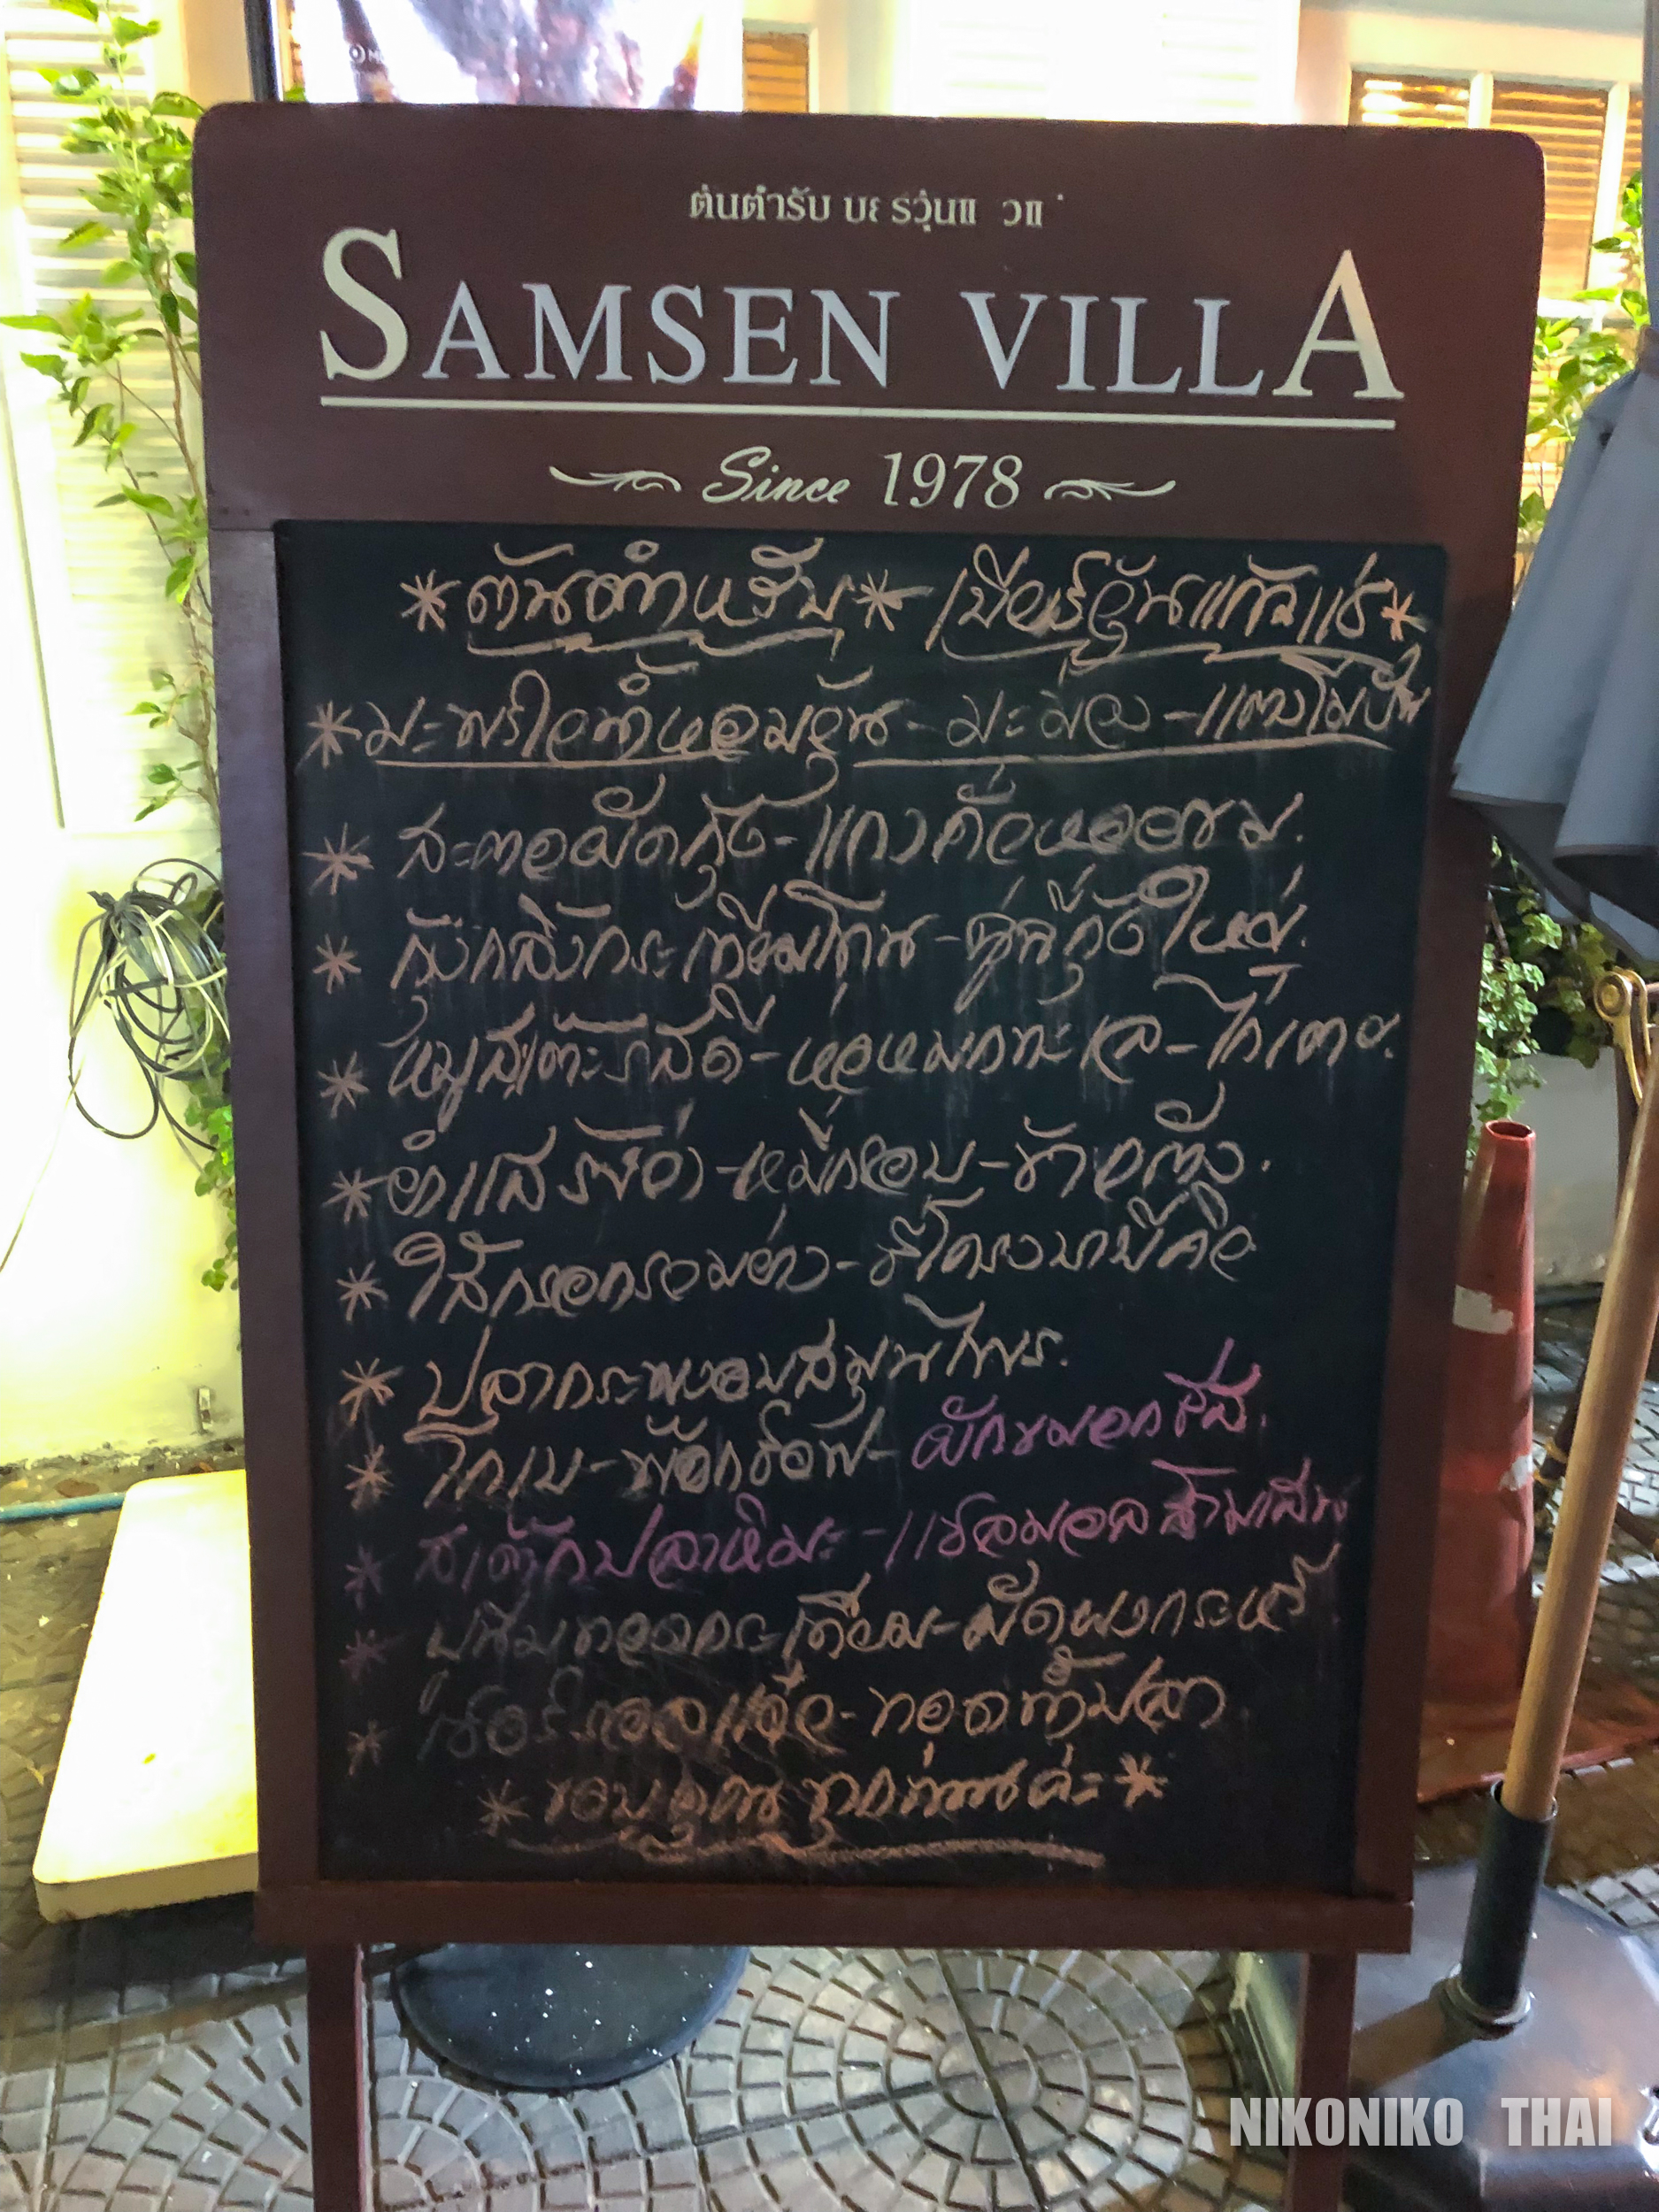 ต้นตำรับ
SAMSEN VILLA
Since 1978
*ต้นตำหรับ* เบียร์วุ้นแก้วแช่*
* มะพร้าวน้ำหอมวุ้น - มะม่วง - แตงโมปั่น
* สะตอผัดกุ้ง - แกงคั่วหอยขม.
* กุ้งกระเทียมโทน - กุ้งใหญ่.
* หมูสะเต๊ะ - ห่อหมกทะเล - ไก่
* ยำ - หมี่กรอบ - ข้าวตัง.
* ไส้กรอกรวมย่าง - ซี่โครงบาบีคิว
* ปลากระพงอบสมุนไพร.
* - ผักขมอบชีส.
* สเต๊กปลาหิมะ - แซลมอนสามเสน
* ปูนิ่มทอดกระเทียม - ผัดผงกระหรี่
* - ทอดน้ำปลา
* ขอบคุณทุกท่านค่ะ *
NIKONIKO THAI